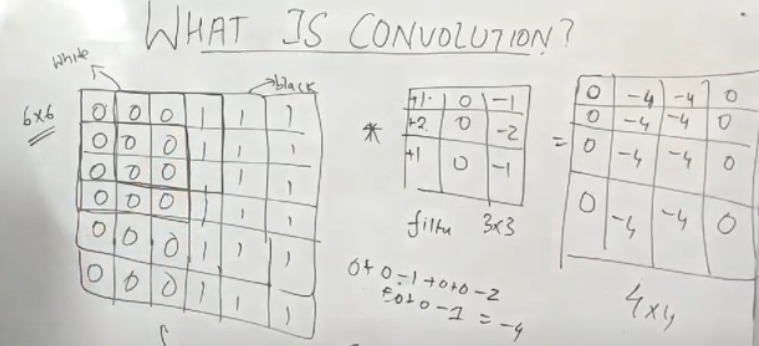 WHAT IS CONVOLUTION?
White
black
6x6
0 0 0 1 1 1
0 0 0 1 1 1
0 0 0 1 1 1
0 0 0 1 1 1
0 0 0 1 1 1
0 0 0 1 1 1
*
+1 0 -1
+2 0 -2
+1 0 -1
filter 3x3
=
0 -4 -4 0
0 -4 -4 0
0 -4 -4 0
0 -4 -4 0
4x4
0+0-1+0+0-2
+0+0-1 = -4